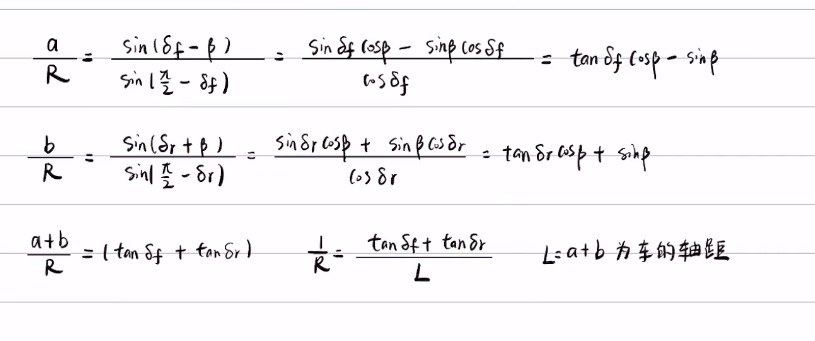 a/R = sin(δf - β)/sin(π/2 - δf) = (sin δf cosβ - sinβ cos δf)/cos δf = tan δf cosβ - sin β
b/R = sin(δr + β)/sin(π/2 - δr) = (sin δr cosβ + sin β cos δr)/cos δr = tan δr cosβ + sinβ
(a+b)/R = (tan δf + tan δr) 1/R = (tan δf + tan δr)/L L=a+b 为车的轴距